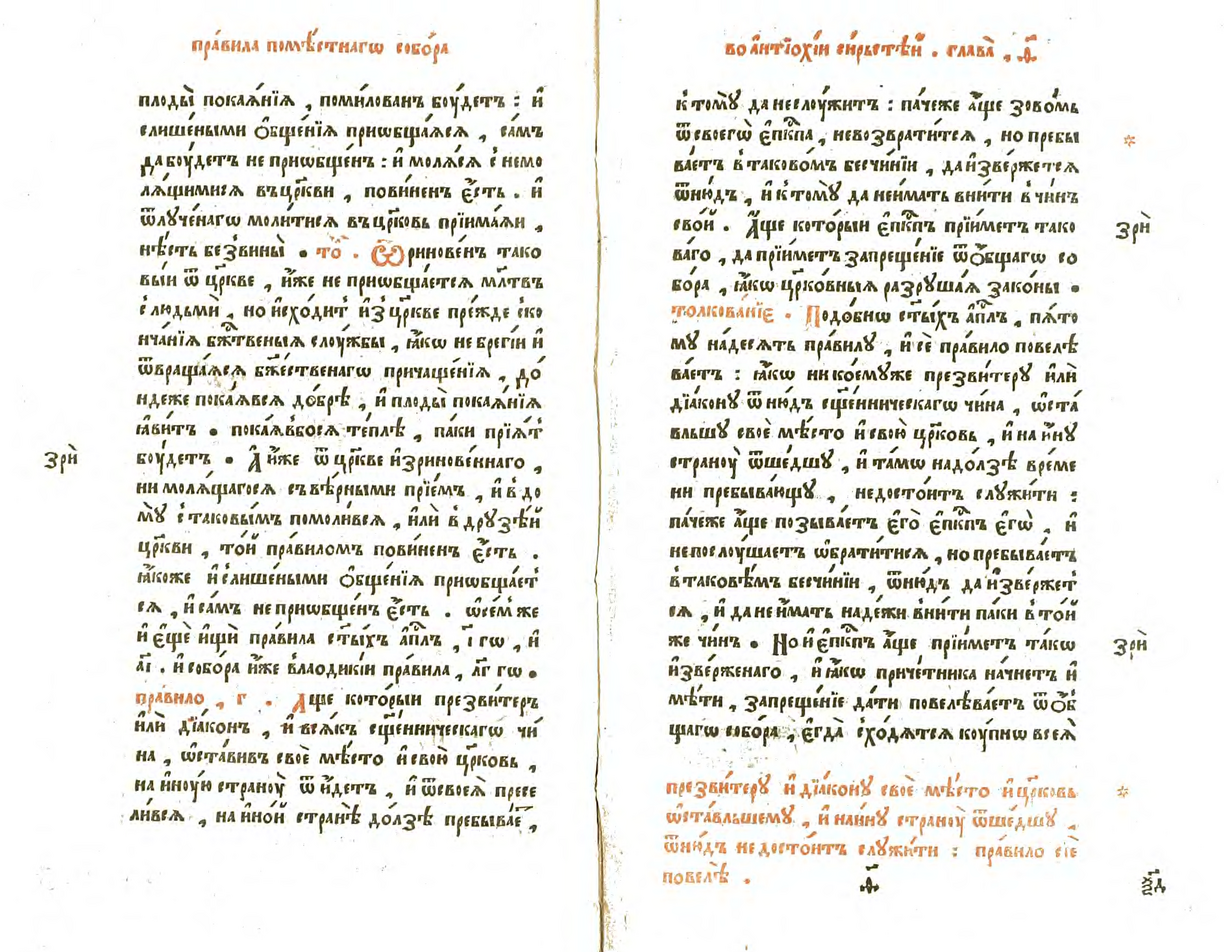 пра́вила помѣ́стнагѡ собо́ра
плоды̀ покаѧ́нїѧ , поми́лованъ бꙋ́детъ : и҆
слише́ными ѻ҆бще́нїѧ приѡбща́ѧсѧ , са́мъ
да бꙋ́детъ не приѡбще́нъ : и҆ молѧ́сѧ с немо
лѧ́щимисѧ въ цр҃кви , пови́ненъ є҆́сть . и҆
ѿлꙋче́нагѡ моли́тисѧ въ цр҃ковь прїима́ѧи ,
нѣ́сть без̾вины̀ . то̑ . Ѿринове́нъ тако
вы́и ѿ цр҃кве , и҆́же не приѡбща́етсѧ мл҃твъ
с людьмѝ , но и҆схо́дит̾ и҆з̾ цр҃кве пре́жде ско
нча́нїѧ бж҃твеныѧ слꙋ́жбы , ꙗ҆́кѡ не брегі́и и҆
ѿвраща́ѧсѧ бж҃ественагѡ причаще́нїѧ , до́
ндеже пока́ѧвсѧ до́брѣ , и҆ плоды̀ покаѧ́нїѧ
ꙗ҆́витъ . пока́ѧвбосѧ те́плѣ , паки прїѧ́т̾
бꙋ́детъ . А҆ и҆́же ѿ цр҃кве и҆зринове́ннаго ,
ни молѧ́щагосѧ съ вѣ́рными прїе́мъ , и҆ в до
мꙋ̀ с таковы́мъ помоли́всѧ , и҆лѝ в дрꙋзѣ́й
цр҃кви , то́й пра́виломъ пови́ненъ є҆́сть .
ꙗ҆́коже и҆ слише́ными ѻ҆бще́нїѧ приѡбща́ет̾
сѧ , и҆ са́мъ не приѡбще́нъ є҆́сть . ѡ҆ се́м̾ же
и҆ є҆щѐ и҆щѝ пра́вила ст҃ы́хъ а҆п҃лъ , і҃ гѡ , и҆
а҃і . и҆ собо́ра и҆́же в лаодикі́и пра́вила , л҃г гѡ .
пра́вило , г . А҆́ще кото́рыи презви́теръ
и҆лѝ дїа́конъ , и҆ всѧ́къ сщ҃е́нническагѡ чи́
на , ѡ҆ста́вивъ своѐ мѣ́сто и҆ свою̀ цр҃ковь ,
на и҆́нꙋю странꙋ̀ ѿи҆́детъ , и҆ ѿ своеѧ̀ пресе
ли́всѧ , на и҆но́й странѣ̀ до́лзѣ пребыва́е҆т ,
зрѝ
во а҆нтїохі́и си́рьстѣй . глава̀ , ѳ҃ .
к томꙋ̀ да не слꙋ́житъ : па́чеже а҆́ще зово́мь
ѿ своегѡ̀ є҆п҃кпа , не возврати́тсѧ , но пребы
ва́етъ в таково́мъ безчи́нїи , да и҆зве́ржетсѧ
ѿню́дъ , и҆ к томꙋ̀ да не и҆́мать вни́ти в чи́нъ
сво́й . А҆́ще кото́рыи є҆п҃кпъ прїи́метъ тако
ва́го , да прїи́метъ запреще́нїе ѿ ѻ҆́бщагѡ со
бо́ра , ꙗ҆́кѡ цр҃ко́вныѧ разрꙋша́ѧ зако́ны .
толкова́нїе . Подо́бнѡ ст҃ы́хъ а҆п҃лъ , пѧ́то
мꙋ на́десѧть пра́вилꙋ , и҆ сѐ пра́вило повелѣ
ва́етъ : ꙗ҆́кѡ ни комꙋ́же презви́терꙋ и҆лѝ
дїа́конꙋ ѿню́дъ сщ҃е́нническагѡ чи́на , ѡ҆ста́
вльшꙋ своѐ мѣ́сто и҆ свою̀ цр҃ковь , и҆ на и҆́нꙋ
странꙋ̀ ѿше́дшꙋ , и҆ та́мѡ надо́лзѣ вре́ме
ни пребыва́ющꙋ , недосто́итъ слꙋжи́ти :
па́чеже а҆́ще позыва́етъ є҆го̀ є҆п҃кпъ є҆гѡ̀ , и҆
непослꙋ́шаетъ ѡ҆брати́тисѧ , но пребыва́етъ
в таковѣ́мъ безчи́нїи , ѿню́дъ да и҆зве́ржет̾
сѧ , и҆ да не и҆́мать наде́жи вни́ти паки в то́й
же чи́нъ . Но и҆ є҆п҃кпъ а҆́ще прїи́метъ та́кѡ
и҆зве́рженаго , и҆ ꙗ҆́кѡ приче́тника на́чнетъ и҆
мѣ́ти , запреще́нїе да́ти повелѣва́етъ ѿ ѻ҆́б
щагѡ собо́ра , є҆гда̀ схо́дѧтсѧ кꙋ́пнѡ всеѧ̀
презви́терꙋ и҆ дїа́конꙋ своѐ мѣ́сто и҆ цр҃ковь
ѡ҆ста́вльшемꙋ , и҆ на и҆́нꙋ странꙋ̀ ѿше́дшꙋ ,
ѿню́дъ недосто́итъ слꙋжи́ти : пра́вило сїѐ
повелѣ̀ .
*
зрѝ
зрѝ
*
ѳ҃